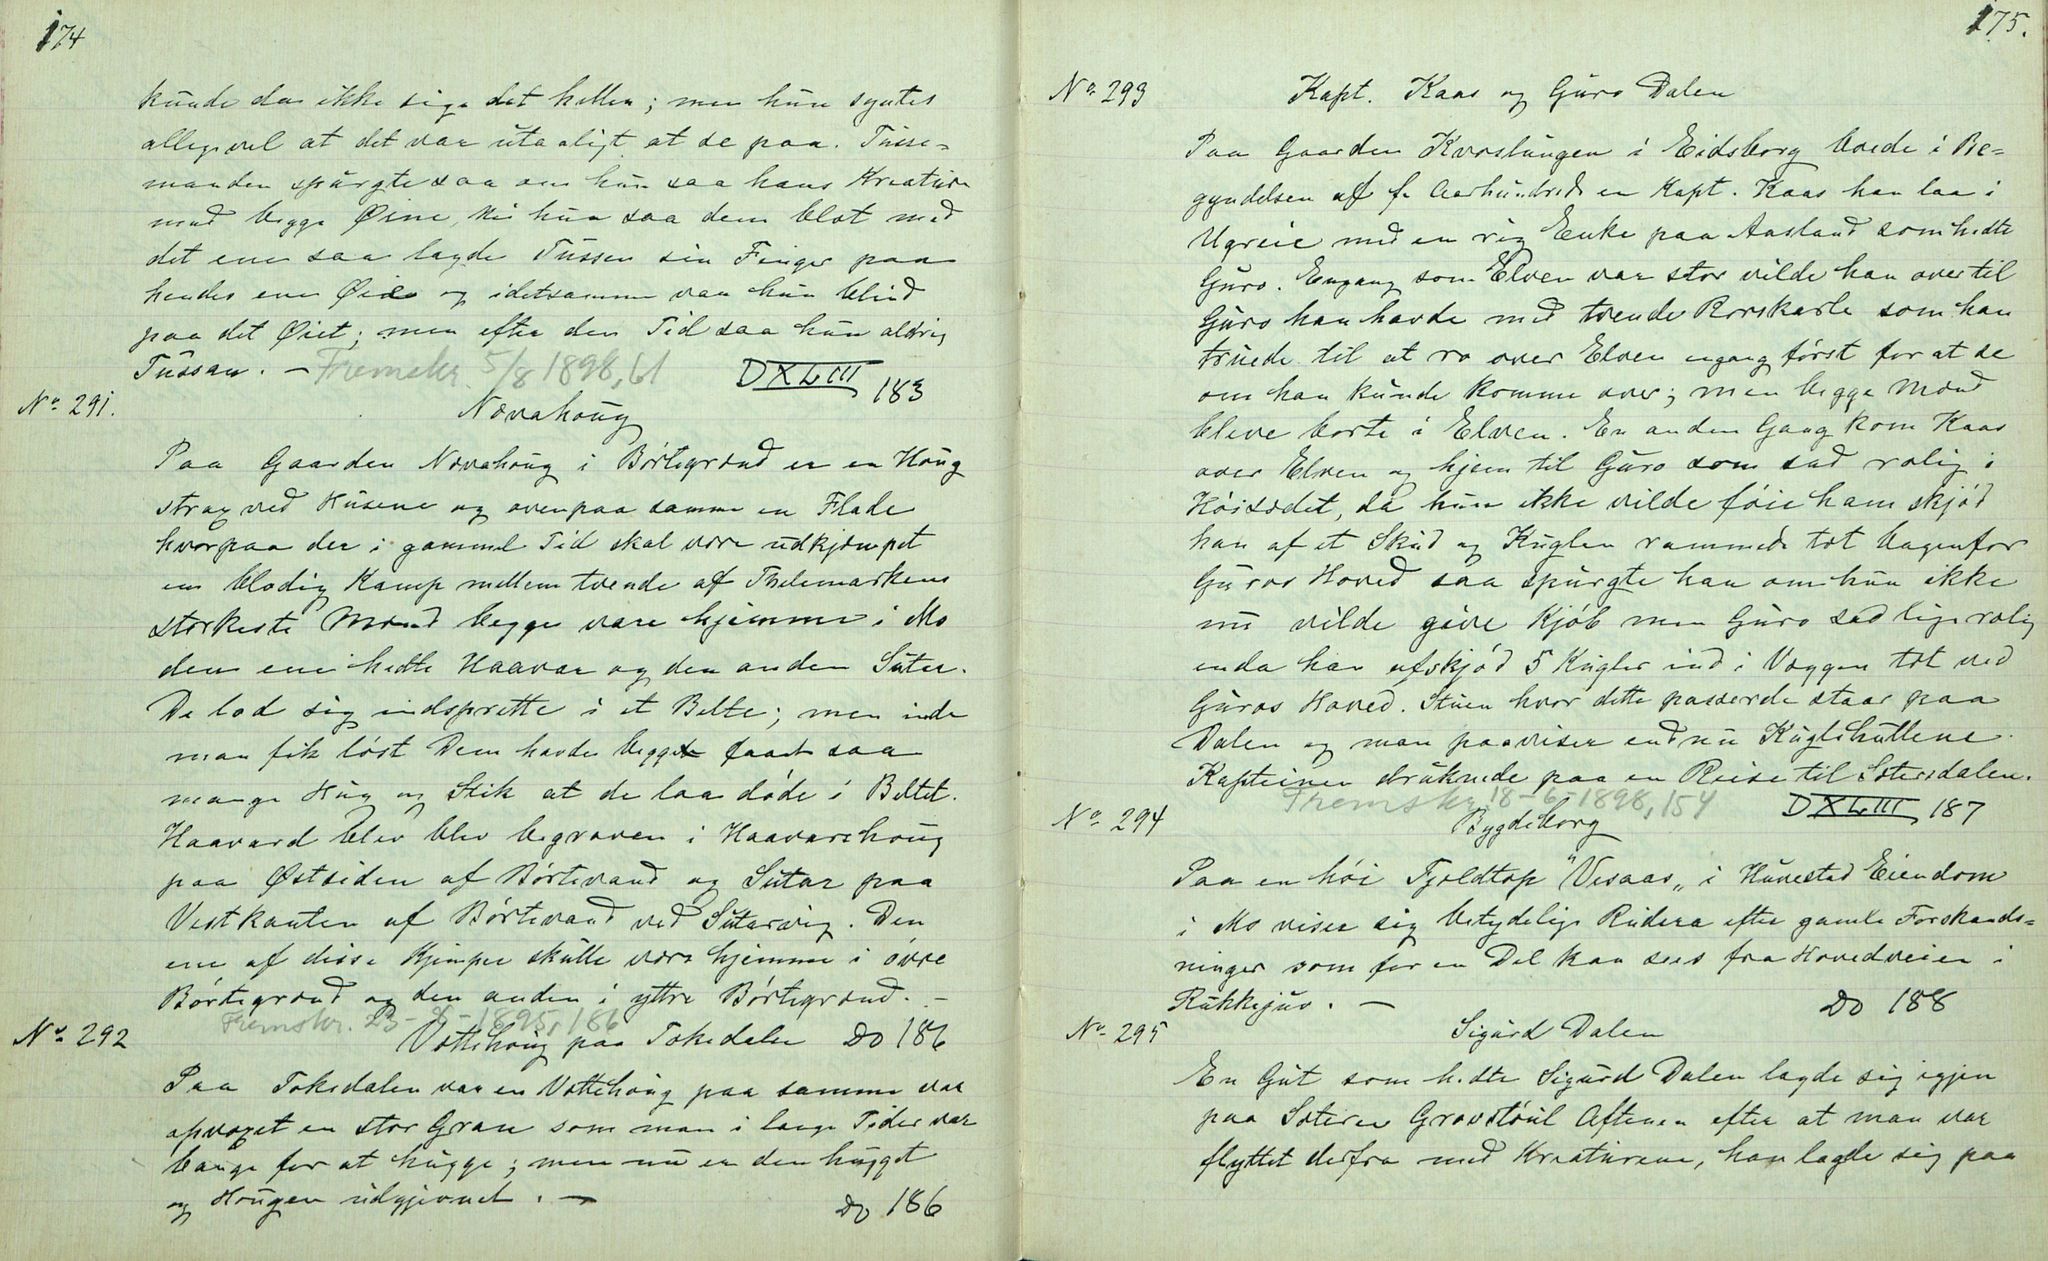 174
kunde da ikke sige det heller; men hun syntes
alligevel at det var utaaligt at se paa. Tusse-
manden spurgte saa om hun saa hans Kreature
med begge Øine, Nei hun saa dem blot med
det ene saa lagde Tussen sin Finger paa
hendes ene Øie og idetsamme var hun blind
paa det Øiet; men efter den Tid saa hun aldrig
Tussan. — Fremskr. 5/8 1898, 61 DXLIII 183
No 291. Nævahoug
Paa Gaarden Nævahoug i Børtegrænd er en Houg
strax ved Husene og ovenpaa samme en Flade
hvorpaa der i gammel Tid skal være udkjæmpet
en blodig Kamp mellem tvende af Thelemarkens
stærkeste Mænd begge vare hjemme i Mo
den ene hedte Haavar og den anden Sutar.
De lod sig indsprette i et Belte; men inde
man fik løst Dem havde begge faaet saa
mange Hug og Stik at de laa døde i Beltet.
Haavard blev blev begraven i Haavarshoug
paa Østsiden af Børtevand og Sutar paa
Vestkanten af Børtevand ved Sutarvig. Den
ene af disse Kjæmper skulle være hjemme i øvre
Børtegrænd og den anden i yttre Børtegrænd. —
Fremskr. 23-8-1895, 186
No 292 Vættehoug paa Tokedalen Do 186
Paa Tokedalen var en Vættehoug paa samme var
opvoxet en stor Gran som man i lange Tider var
bange for at hugge; men nu er den hugget
og Hougen udgjævnet. — Do 186
175.
No 293 Kapt. Kaas og Guro Dalen
Paa Gaarden Kvæstungen i Eidsborg boede i Be-
gyndelsen af f. Aarhundrede en Kapt. Kaas han laa i
Ugreie med en rig Enke paa Aasland som hedte
Guro. Engang som Elven var stor vilde han over til
Guro han havde med tvende Rorskarle som han
truede til at ro over Elven engang først for at se
om han kunde komme over; men begge Mænd
bleve borte i Elven. En anden Gang kom Kaas
over Elven og hjem til Guro som sad rolig i
Høisædet, da hun ikke vilde føie ham skjød
han af et Skud og Kuglen rammede tæt bagenfor
Guros Hoved saa spurgte han om hun ikke
nu vilde give Kjøb men Guro sad lige rolig
enda han afskjød 5 Kugler ind i Væggen tæt ved
Guros Hoved. Stuen hvor dette passerede staar paa
Dalen og man paaviser endnu Kuglehullene.
Kapteinen druknede paa en Reise til Sætersdalen.
Fremskr. 18-6-1898, 154 DXLIII 187
No 294 Bygdeborg
Paa en høi Fjeldtop "Vesaas„ i Huvestad Eiendom
i Mo viser sig betydelige Rudera efter gamle Forskands-
ninger som for en Del kan sees fra Hovedveien i
Rukkejuv. — Do 188
No 295 Sigurd Dalen
En Gut som hedte Sigurd Dalen lagde sig igjen
paa Sæteren Gravstøul Aftenen efter at man var
flyttet derfra med Kreaturene, han lagde sig paa